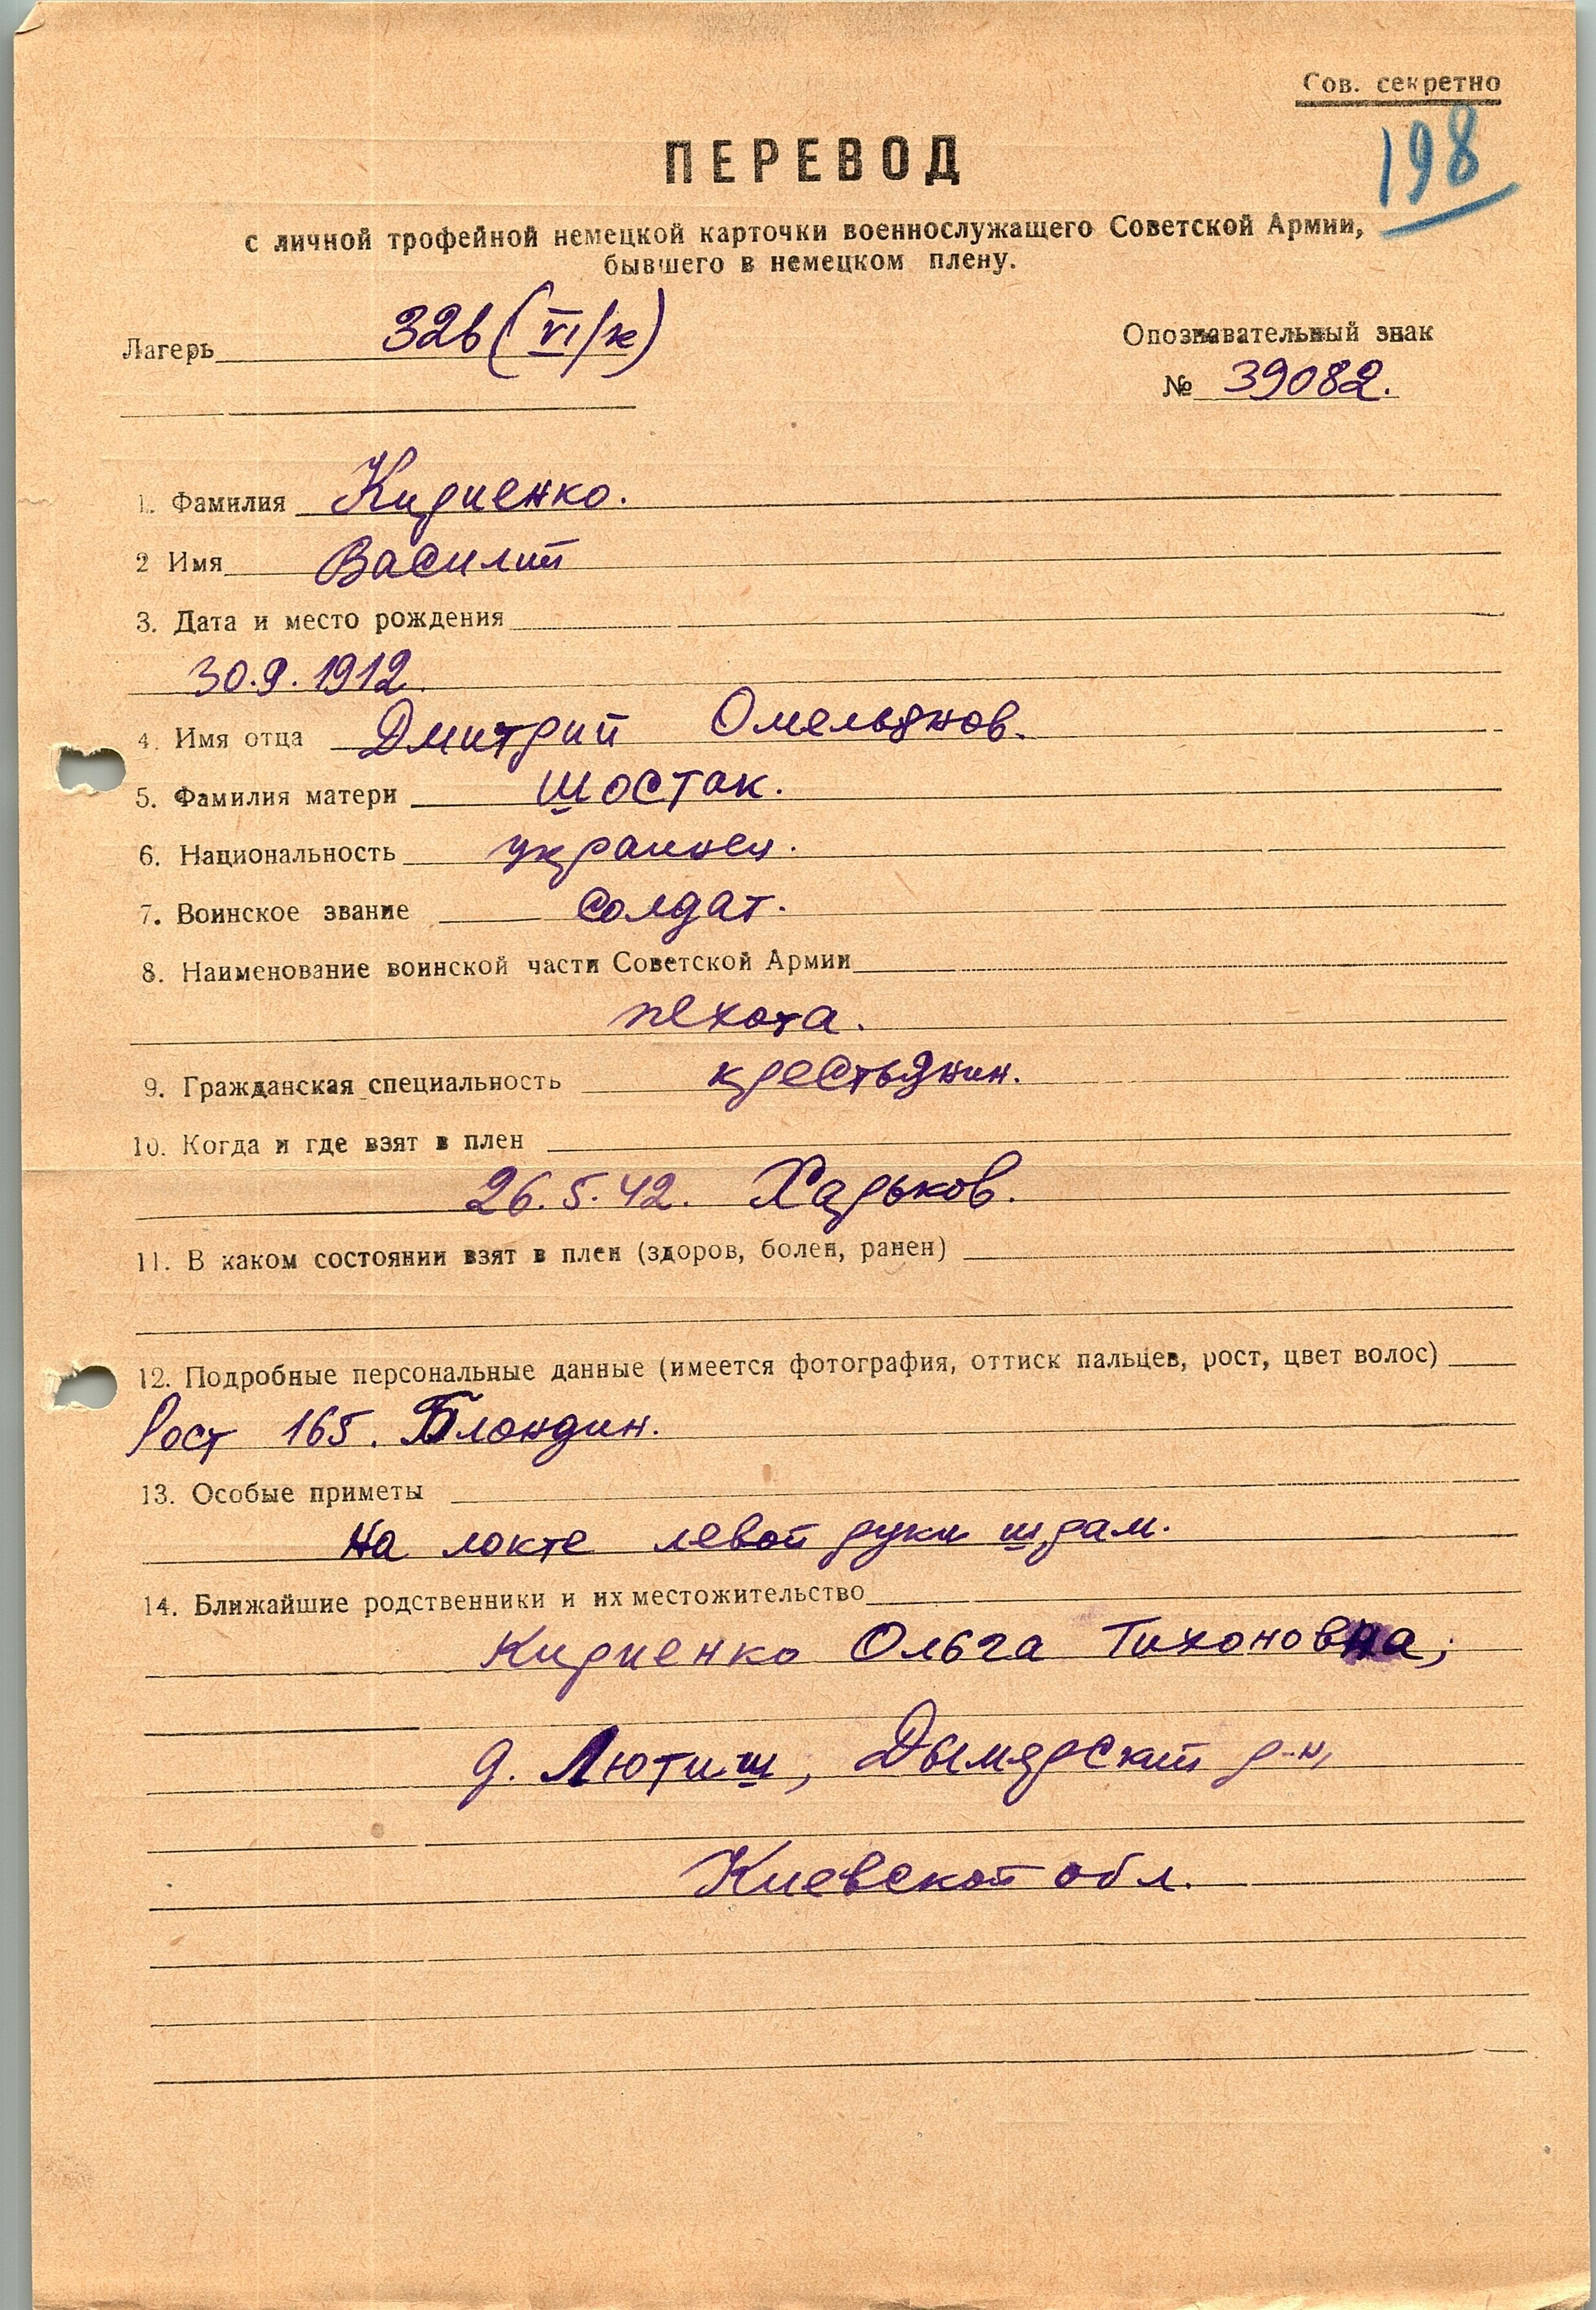 Сов. секретно
198
ПЕРЕВОД
с личной трофейной немецкой карточки военнослужащего Советской Армии,
бывшего в немецком плену.
Лагерь 326 (VI/к)
Опознавательный знак
№ 39082.
1. Фамилия Кириенко.
2 Имя Василий
3. Дата и место рождения
30.9.1912.
4. Имя отца Дмитрий Омельянов.
5. Фамилия матери Шостак.
6. Национальность украинец.
7. Воинское звание солдат.
8. Наименование воинской части Советской Армии
пехота.
9. Гражданская специальность крестьянин.
10. Когда и где взят в плен
26.5.42. Харьков.
11. В каком состоянии взят в плен (здоров, болен, ранен)
12. Подробные персональные данные (имеется фотография, оттиск пальцев, рост, цвет волос)
Рост 165. Блондин.
13. Особые приметы
На локте левой руки шрам.
14. Ближайшие родственники и их местожительство
Кириенко Ольга Тихоновна;
д. Лютиш, Дымярский р-н,
Киевской обл.